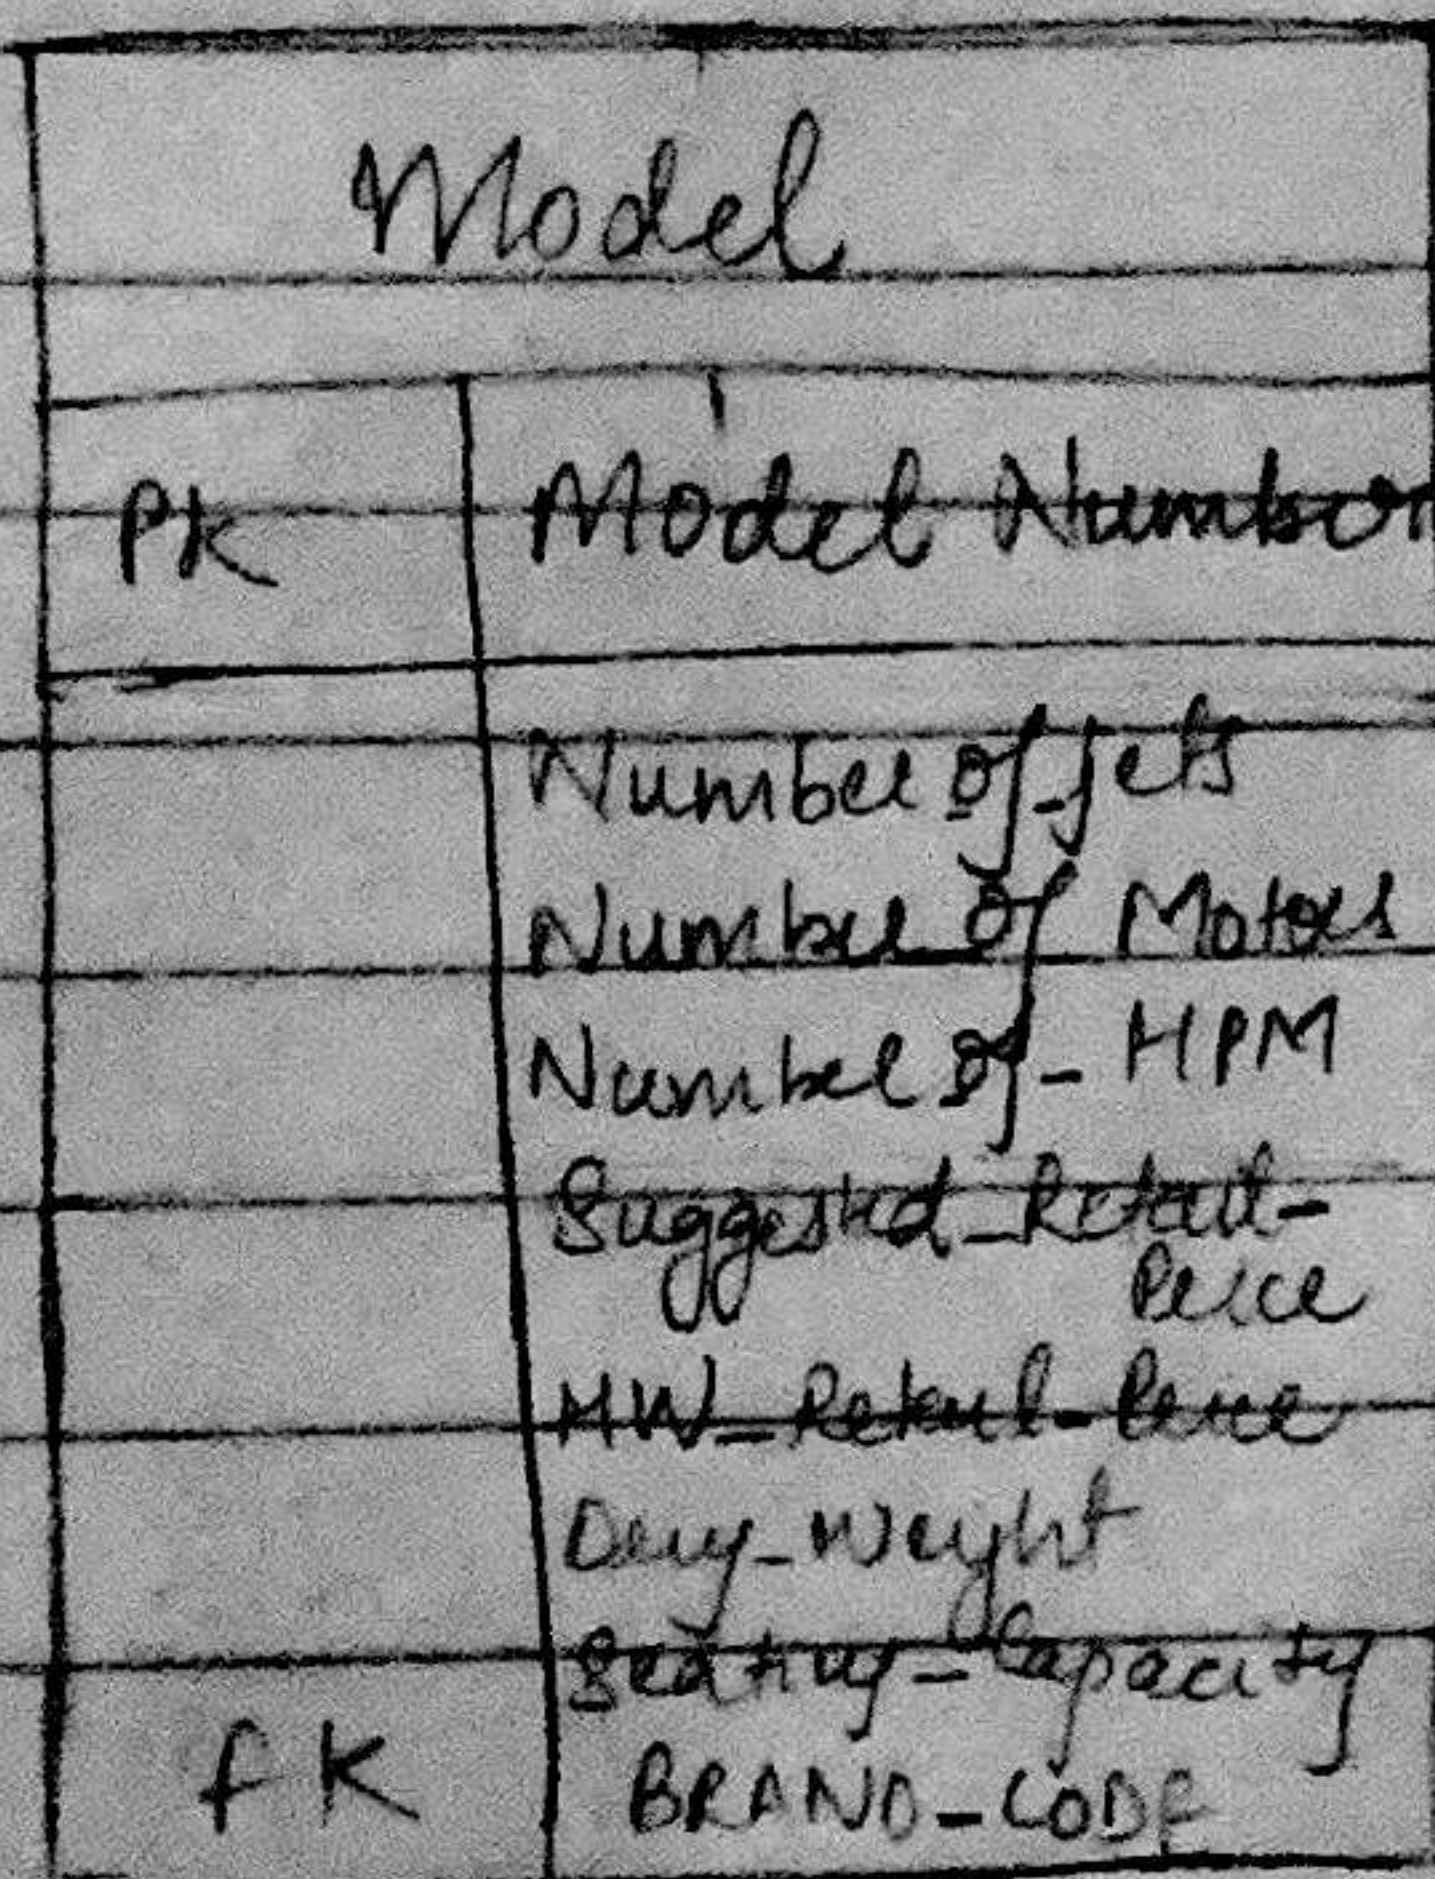 Model
PK Model Number
Number of_jets
Number_of_Motors
Number of_HPM
Suggested_Retail_
Price
HW_Retail_Price
Dry_Weight
Seating_Capacity
FK BRAND_CODE